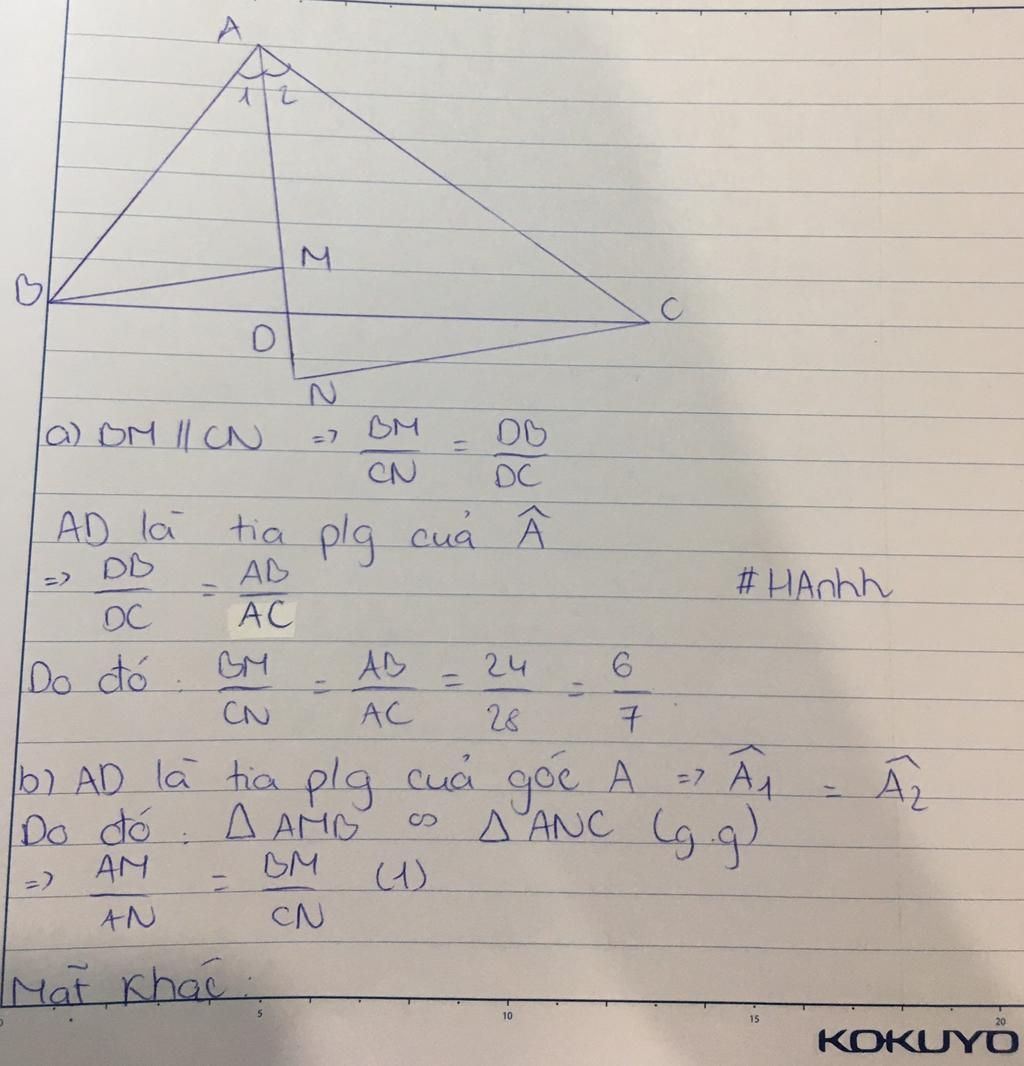 A
1 2
M
B
C
D
N
a) BM // CN => BM/CN = DB/DC
AD là tia plg cuả Â
=> DB/DC = AB/AC
#HAnhh
Do đó : BM/CN = AB/AC = 24/28 = 6/7
b) AD là tia plg cuả góc A => Â1 = Â2
Do đó : Δ AMB ∽ Δ ANC (g.g)
=> AM/AN = BM/CN (1)
Mặt Khác :
0 5 10 15 20
KOKUYO